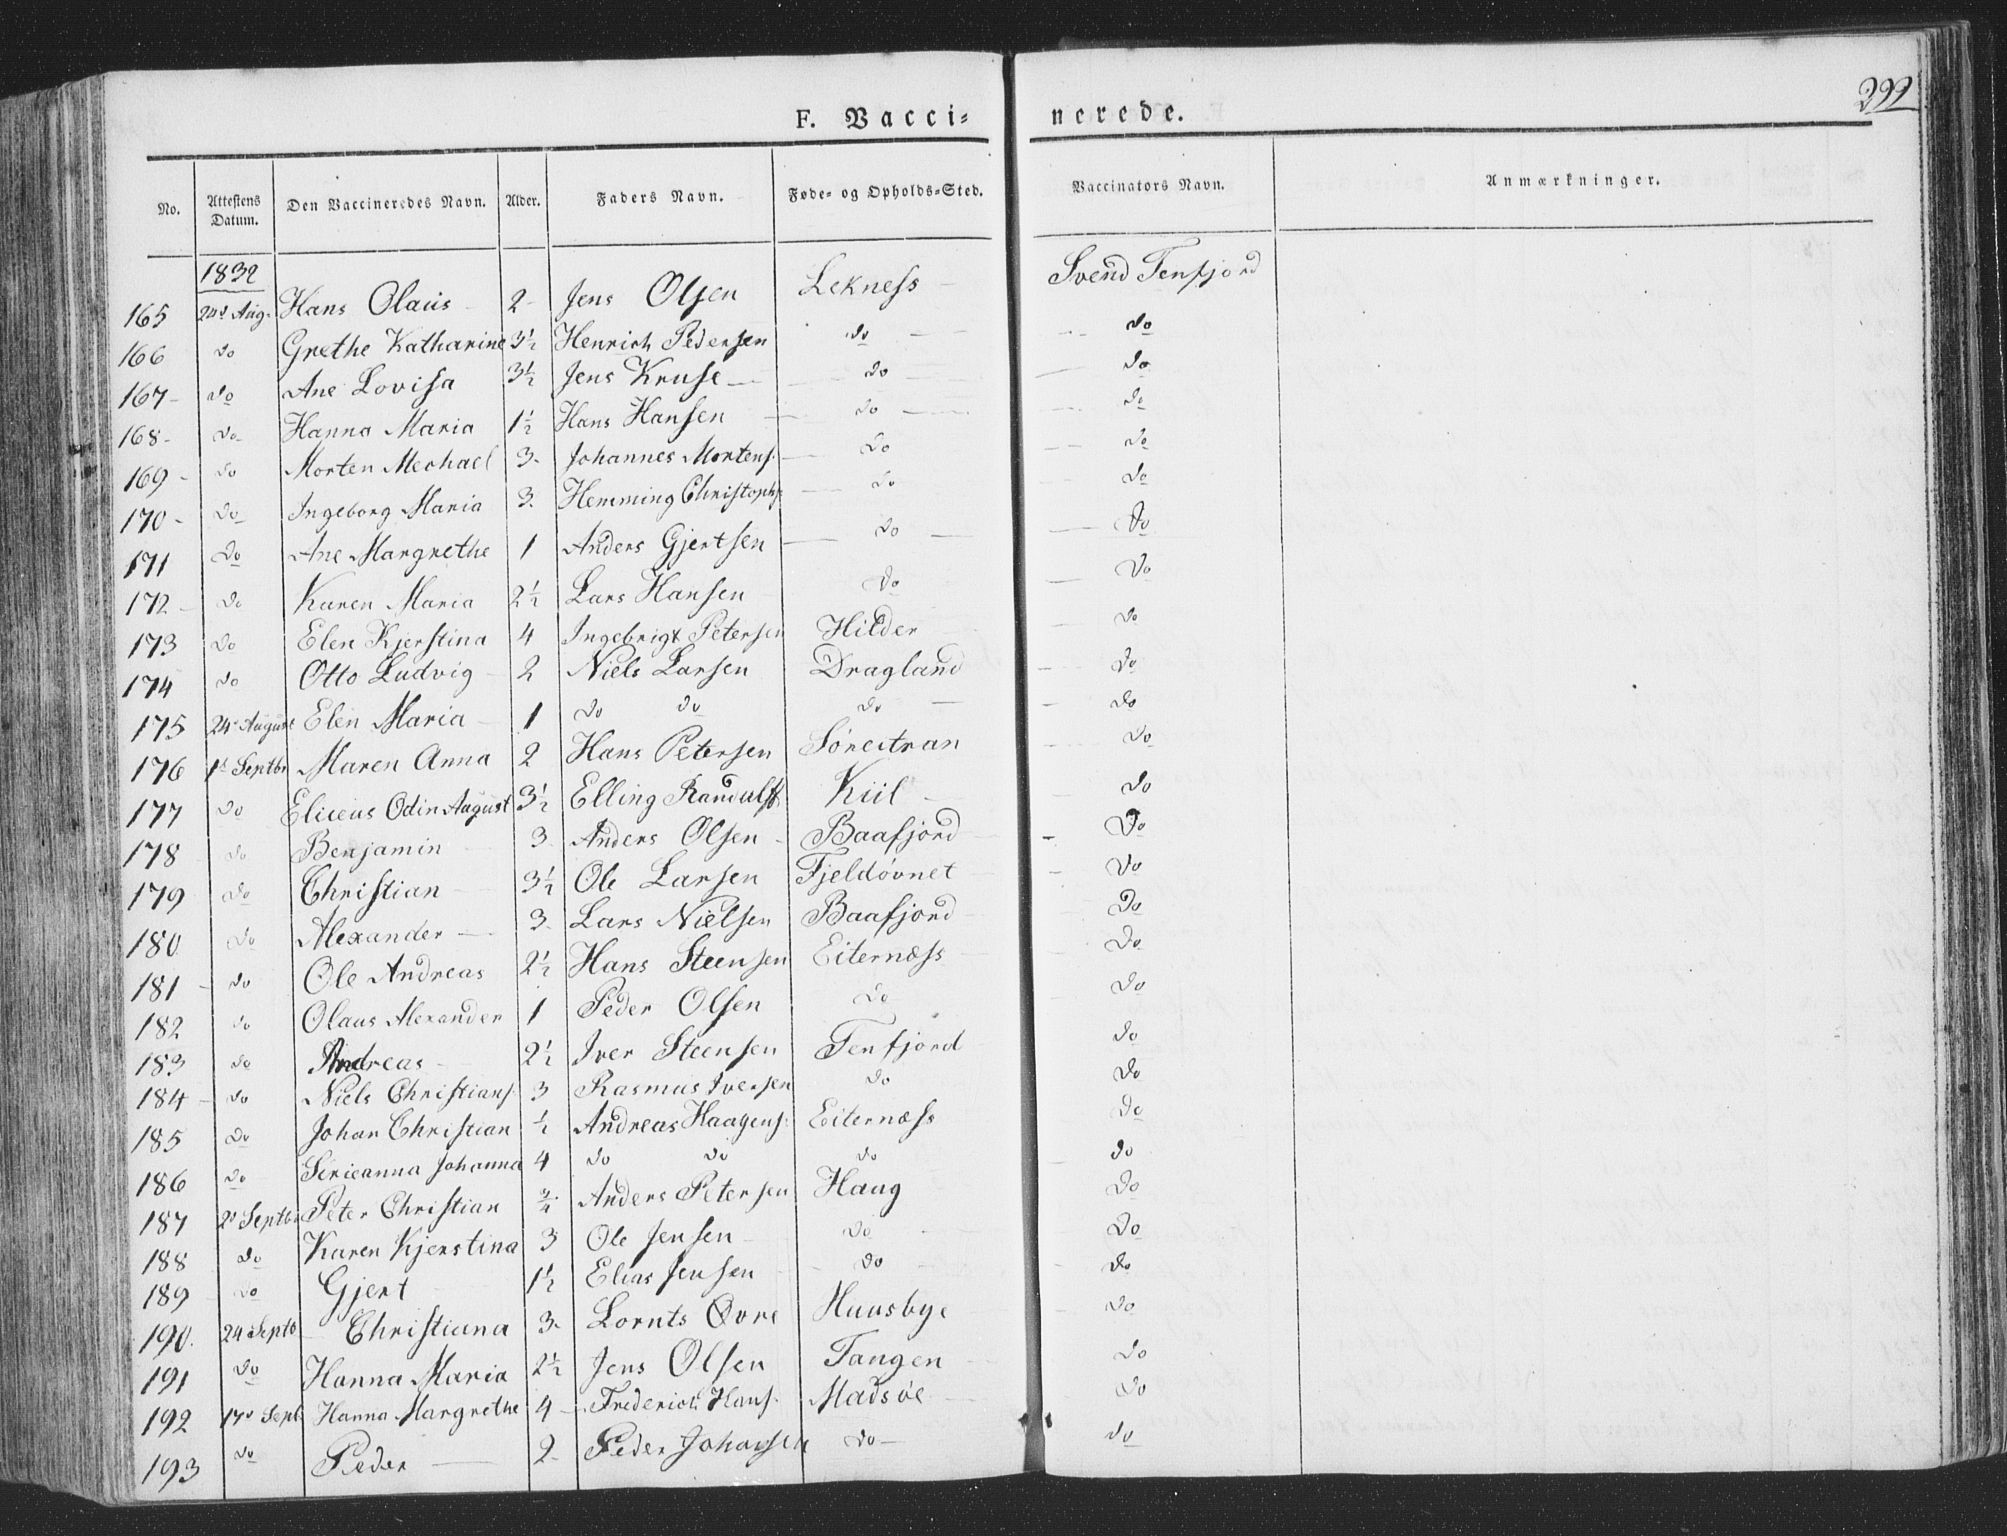 299
F. Vacci= nerede.
No. Attestens Datum. Den Vaccineredes Navn. Alder. Faders Navn. Føde- og Opholds-Sted. Vaccinators Navn. Anmærkninger.
1832
165 24d Aug. Hans Olaus 2 Jens Olsen Lekness Svend Tenfjord
166 do Grethe Katharine 3½ Henrich Pedersen do do
167 do Ane Lovisa 3½ Jens Kruse do do
168 do Hanna Maria 1½ Hans Hansen do do
169 do Morten Mechael 3 Johannes Mortens. do do
170 do Ingeborg Maria 3 Hemming Christophs. do do
171 do Ane Margrethe 1 Anders Gjertsen do do
172 do Karen Maria 2½ Lars Hansen do do
173 do Elen Kjerstina 4 Ingebrigt Petersen Hilder do
174 do Otto Ludvig 2 Niels Larsen Dragland do
175 24. August Elen Maria 1 do do do do
176 1d Septbr Maren Anna 2 Hans Petersen Sørestran do
177 do Eliceus Odin August 3½ Elling Randulf Kiil do
178 do Benjamin 3 Anders Olsen Baafjord do
179 do Christian 3½ Ole Larsen Fjeldøvnet do
180 do Alexander 3 Lars Nielsen Baafjord do
181 do Ole Andreas 2½ Hans Steensen Eiternæss do
182 do Olaus Alexander 1 Peder Olsen do do
183 do Andreas 2½ Iver Steensen Tenfjord do
184 do Niels Christians. 3 Rasmus Iversen do do
185 do Johan Christian ½ Andreas Haagens. Eiternæss do
186 do Serieanna Johanna 4 do do do do
187 2d Septbr Peter Christian ¾ Anders Petersen Haug do
188 do Karen Kjerstina 3 Ole Jensen do do
189 do Gjert 1½ Elias Jensen do do
190. 24d Septb Christiana 3 Lornts Øvre Huusbye do
191 do Hanna Maria 2½ Jens Olsen Tangen do
192 17d Sept. Hanna Margrethe 4 Frederich Hans. Madsøe do
193 do Peder 2 Peder Johansen do do